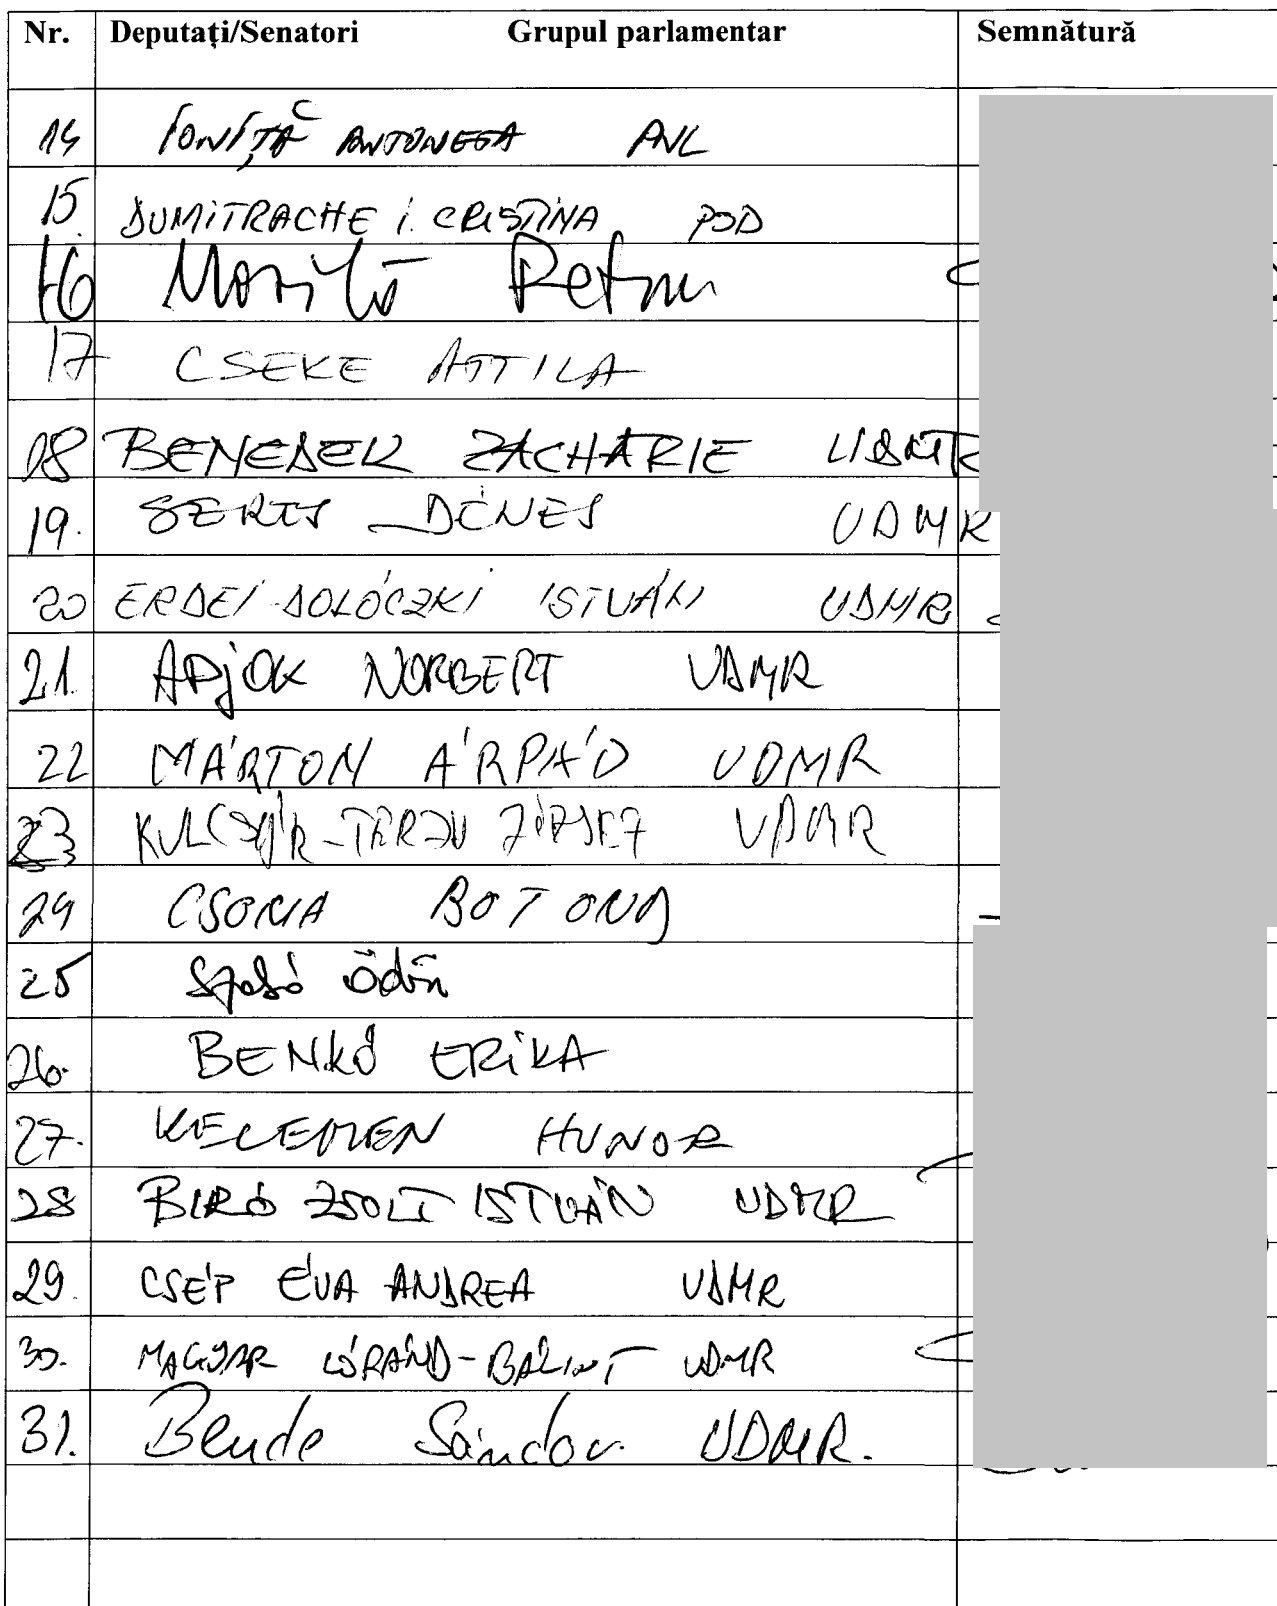 Nr. Deputați/Senatori Grupul parlamentar Semnătură
14 IONIȚĂ ANTONETA PNL
15 DUMITRACHE I. CRISTINA PSD
16
17 CSEKE ATTILA
18 BENEDEK ZACHARIE UDMR
19. SERES DÉNES UDMR
20 ERDEI DOLÓCZKI ISTVÁN UDMR
21. APJOK NORBERT UDMR
22 MÁRTON ÁRPÁD UDMR
23 KULCSÁR-TERZA JÓZSEF UDMR
24 CSOMA BOTOND
25 Szabó Ödön
26. BENKŐ ERIKA
27. KELEMEN HUNOR
28 BIRÓ ZSOLT ISTVÁN UDMR
29. CSÉP ÉVA ANDREA UDMR
30. MAGYAR LÓRÁND-BÁLINT UDMR
31. Bende Sándor UDMR.